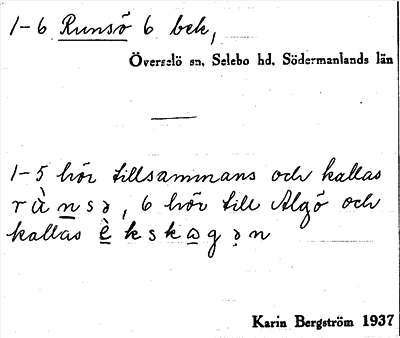 1-6 Runsö 6 bek,
Överselö sn, Selebo hd, Södermanlands län
1-5 hör tillsammans och kallas
r ù n s ɂ, 6 hör till Algö och
kallas è k s k ɷ g ə̣ n
Karin Bergström 1937